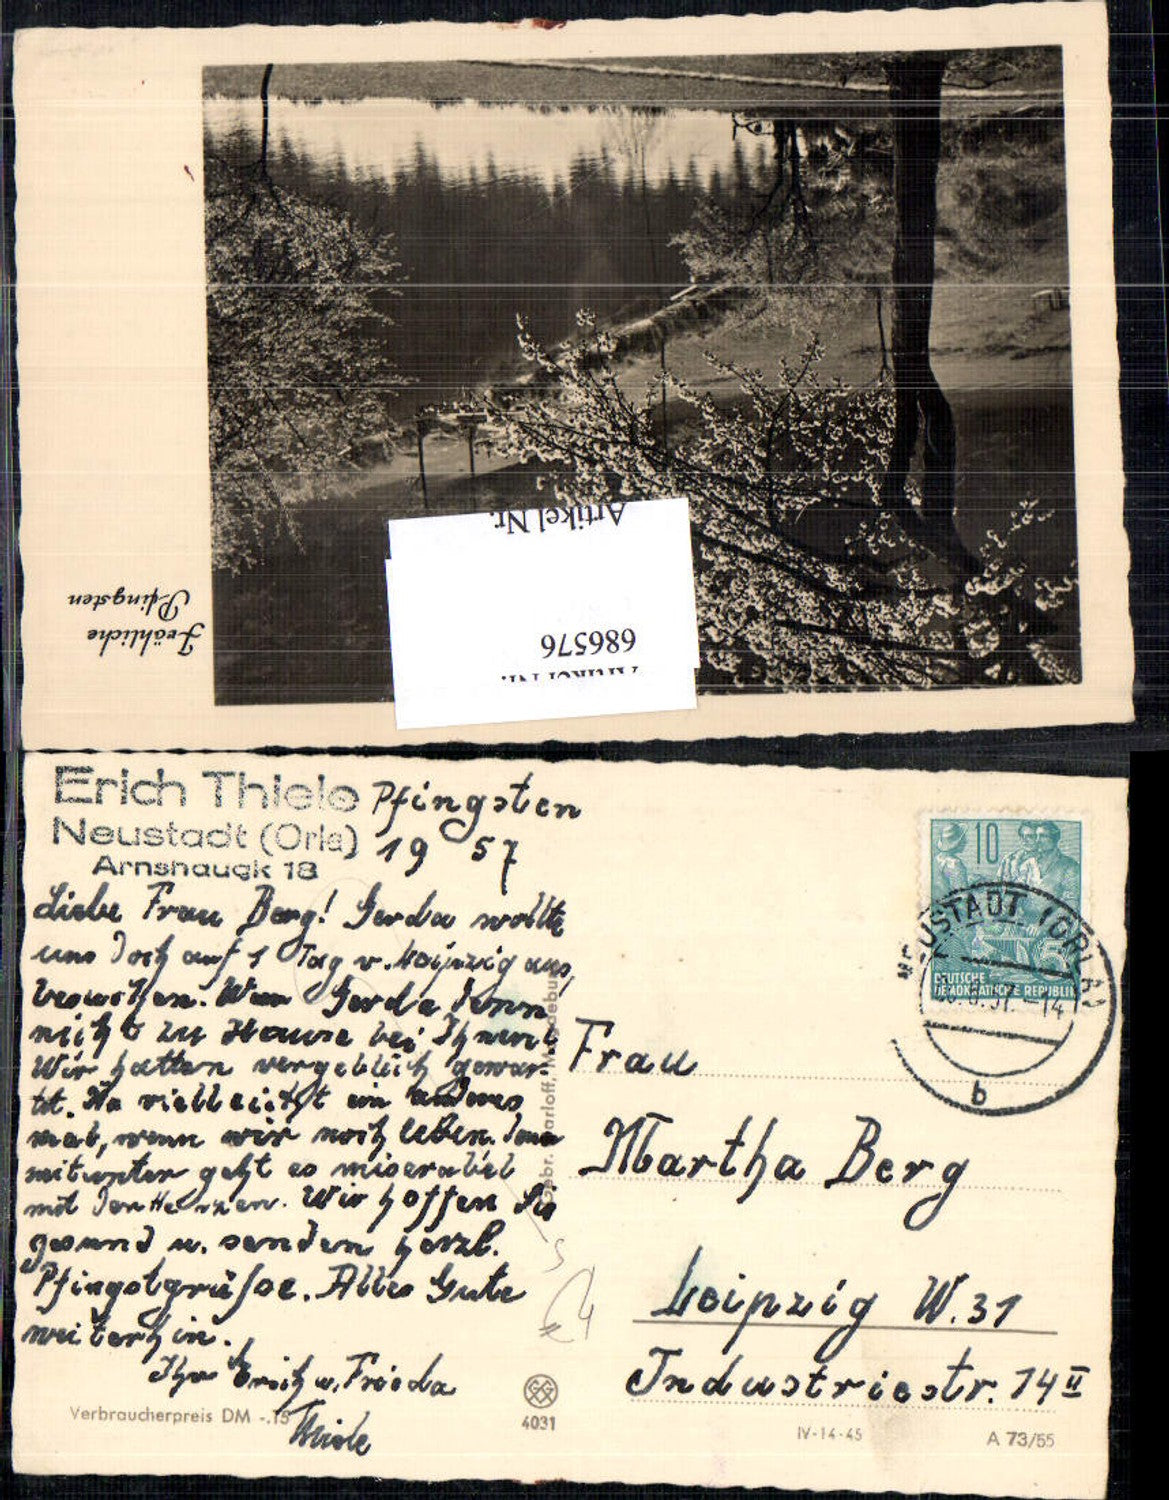 Fröhliche
Pfingsten
Artikel Nr.
686576
Artikel Nr.
Erich Thiele
Neustadt (Orla)
Arnshaugk 18
Pfingsten
1957
Liebe Frau Berg! Gerda wollte
uns doch auf 1 Tag v. Leipzig aus,
besuchen. War Gerda denn
nicht zu Hause bei Ihnen?
Wir hatten vergeblich gewar-
tet. Na vielleicht ein anderes
mal, wenn wir noch leben. Denn
mitunter geht es miserabel
mit den Herzen. Wir hoffen Sie
gesund u. senden herzl.
Pfingstgrüße. Alles Gute
weiterhin.
Ihre Erich u. Frieda
Thiele
Verbraucherpreis DM -.15
4031
Gebr. Garloff, Magdeburg
10
DEUTSCHE
DEMOKRATISCHE REPUBLIK
NEUSTADT (ORLA)
57.-14
b
Frau
Martha Berg
Leipzig W.31
Industriestr. 14 II
IV-14-45
A 73/55